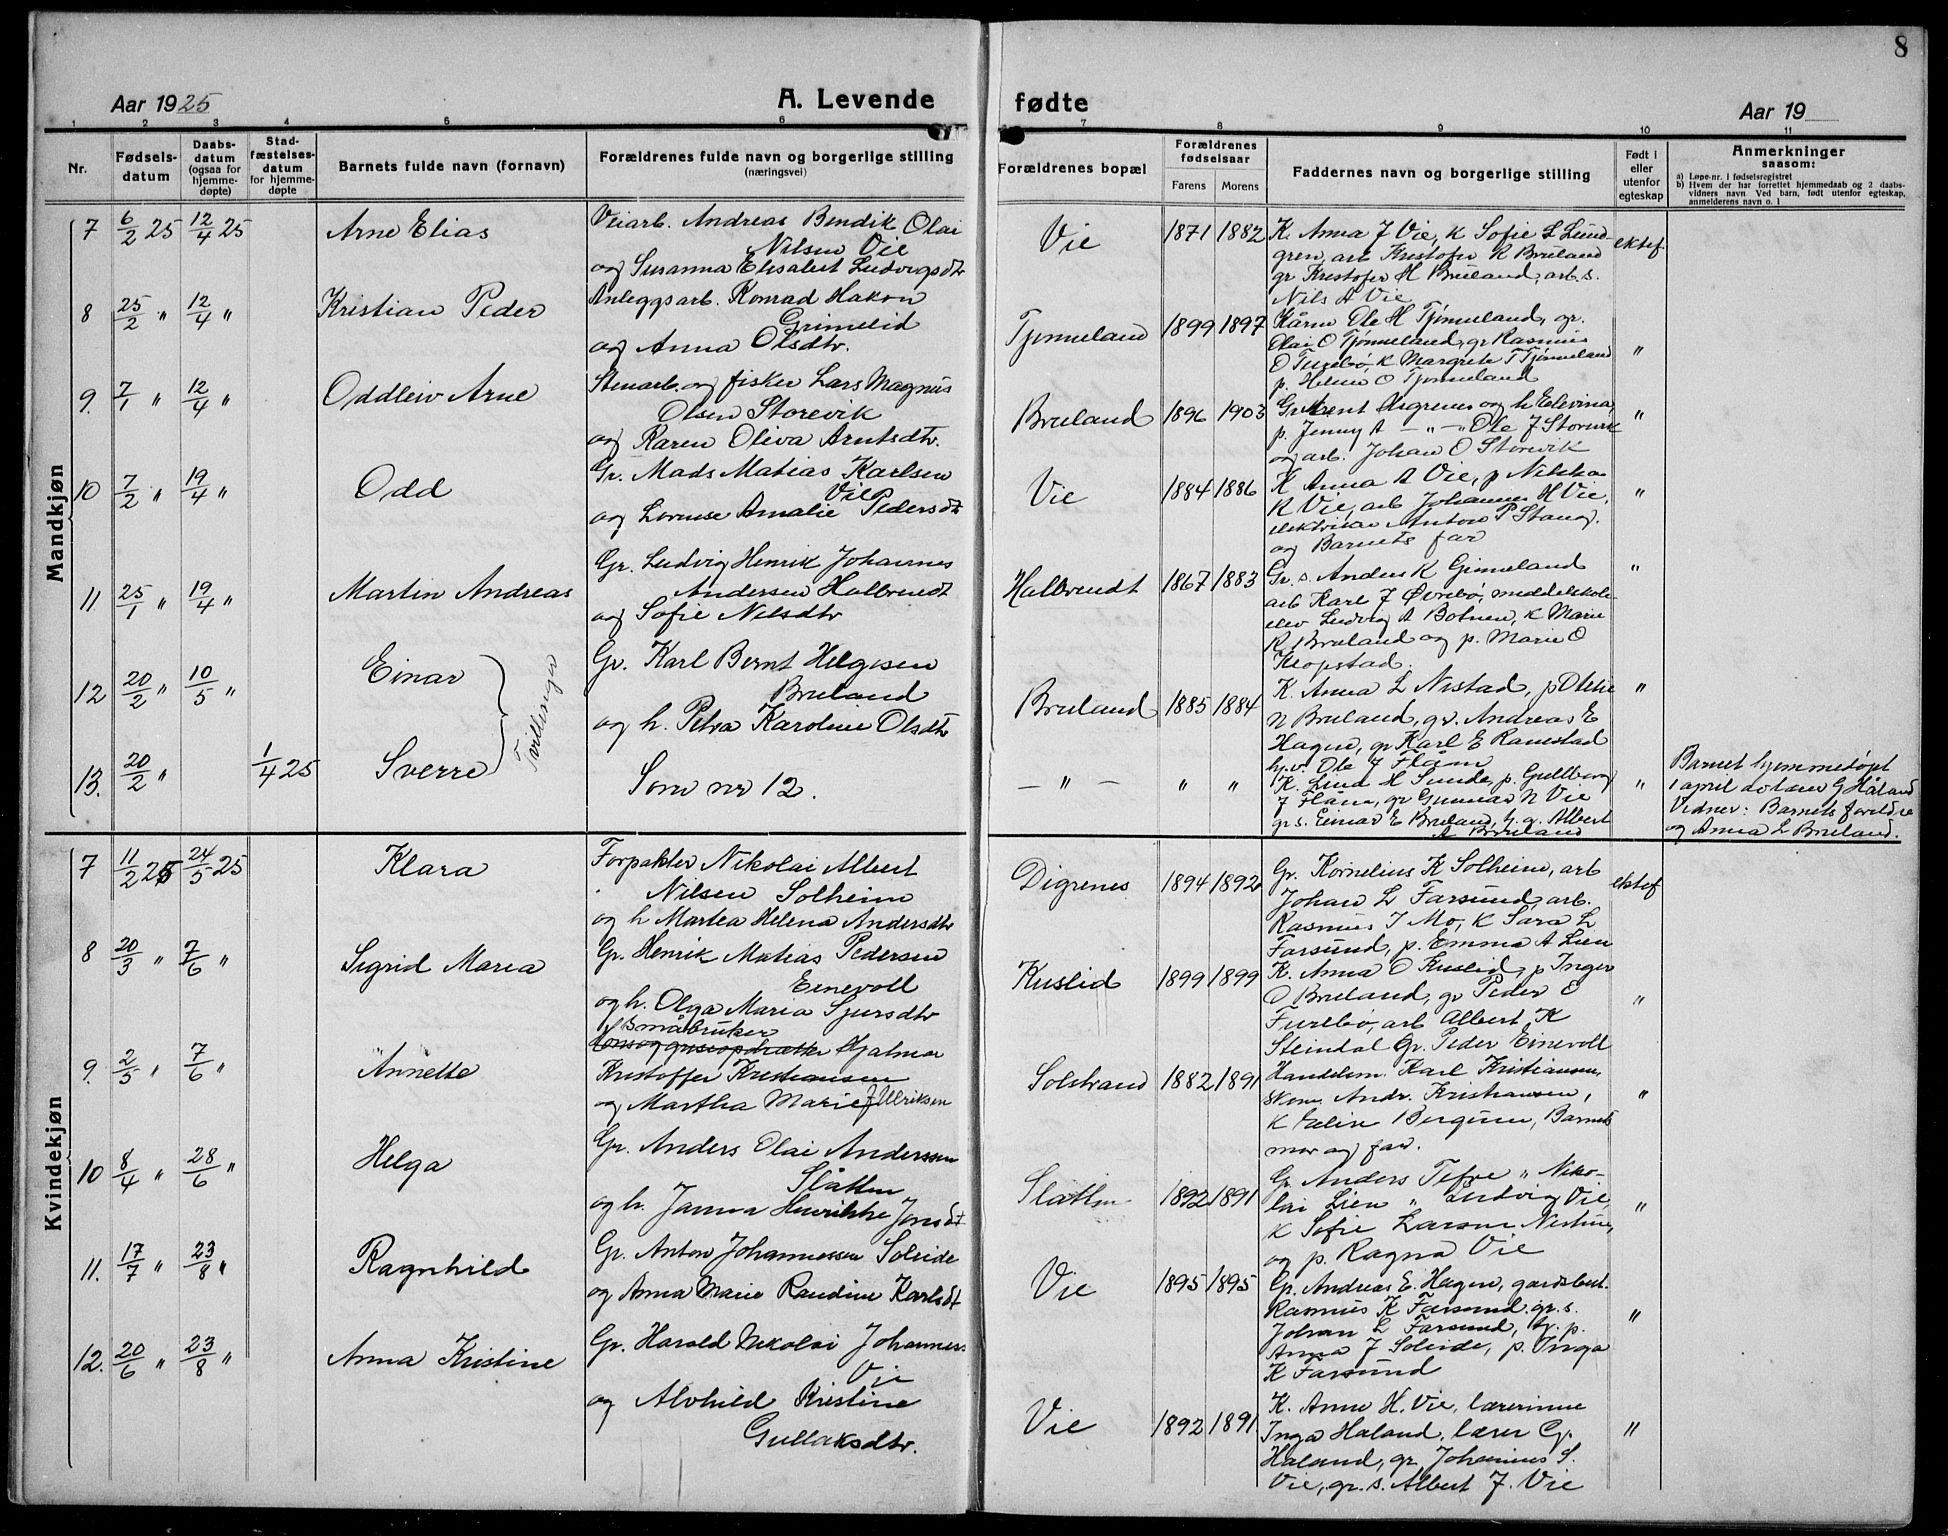 8
Aar 1925
A. Levende
fødte
Aar 19
1 2 3 4 5 6 7 8 9 10 11
Nr.
Fødsels-
datum
Daabs-
datum
(ogsaa for
hjemme-
døpte)
Stad-
fæstelses-
datum
for hjemme-
døpte
Barnets fulde navn (fornavn)
Forældrenes fulde navn og borgerlige stilling
(næringsvei)
Forældrenes bopæl
Forældrenes
fødselsaar
Farens
Morens
Faddernes navn og borgerlige stilling
Født i
eller
utenfor
egteskap
Anmerkninger
saasom:
a) Løpe-nr. i fødselsregistret
b) Hvem der har forrettet hjemmedaab og 2 daabs-
vidners navn. Ved barn, født utenfor egteskap,
anmelderens navn o. l
Mandkjøn
7 6/2 25 12/4 25
Arne Elias
Veiarb. Andreas Bendik Olai
Nilsen Vie
og Susanna Elisabet Ludvigsdtr
Vie
1871 1882
K. Anna J Vie, k Sofie L Lund-
gren, arb Kristofer K Bruland
gr Kristofer H Bruland, arb. s.
Nils A Vie
ektef
8 25/2 " 12/4 "
Kristian Peder
Anleggsarb. Konrad Hakon
Grimelid
og Anna Olsdtr.
Tjønneland
1899 1897
Kårm Ole H Tjønneland, gr.
Olai O Tjønneland, gr Rasmus
O Furebø, k Margrete T Tjønneland
p. Helene O Tjønneland
"
9. 7/1 " 12/4 "
Oddleiv Arne
Stenarb. og fisker Lars Magnus
Olsen Storevik
og Karen Oliva Arntsdtr.
Bruland
1896 1903
Gr Arent Osgrenes og h Elevina,
p. Jenny A — " — Ole J Storevik
og arb. Johan O Storevik
"
10 7/2 " 19/4 "
Odd
Gr. Mads Matias Karlsen
Vie
og Lovise Amalie Pedersdt
Vie
1884 1886
K Anna A Vie, p Nilsha
K Vie, arb Johannes H Vie,
elektriker Anton P Stang.
og Barnets far
"
11 25/1 " 19/4 "
Martin Andreas
Gr. Ludvig Henrik Johannes
Andersen Halbrendt
og Sofie Nilsdtr
Halbrendt
1867 1883
Gr. s. Anders K Gimeland
arb Karl J Øvrebø, middelskole-
elev Ludvig A Botnen, k Marie
R Bruland og p. Marie O
Klopstad.
"
12 20/2 " 10/5 "
Einar
Tvillinger
Gr. Karl Bernt Helgesen
Bruland
og h. Petra Karoline Olsdtr
Bruland
1885 1884
K. Anna L Nistad, p Oletie
N Bruland, gr. Andreas E
Hagen, gr Karl E Ramstad
h.v. Ole J Flåm
"
13. 20/2 " 1/4 25
Sverre
Som nr 12.
— " — " "
K. Lina H Sunde, p. Gullborg
J Flåm, gr Gunnar N Vie
gr s. Einar E Bruland, h. g. Albert
A Bruland
"
Barnet hjemmedøpt
1 april av lærer G Håland
Vidner: Barnets foreldre
og Anna L Bruland.
Kvindekjøn
7 11/2 25 24/5 25
Klara
Forpakter Nikolai Albert
Nilsen Solheim
og h Martea Helena Andersdtr
Digrenes
1894 1892
Gr. Kornelius K Solheim, arb
Johan L Farsund, arb.
Rasmus J Mo, k Sara L
Farsund, p. Emma A Lien
ektef
8 20/3 " 7/6 "
Sigrid Maria
Gr. Henrik Matias Pedersen
Einevoll
og h. Olga Maria Sjursdtr
Kuslid
1899 1899
K. Anna O Kuslid, p Inger
O Bruland, gr Peder E
Furebø, arb Albert K
Steindal Gr. Peder Einevoll
"
9. 2/5 " 7/6 "
Annette
Småbruker
Hjalmar
Kristoffer Kristiansen
og Martha Marie f Ulriksen
Solstrand
1882 1891
Handelsm. Karl Kristiansen,
skom. Andr. Kristiansen,
k Elin Bergum, Barnets
mor og far.
"
10 8/4 " 28/6 "
Helga
Gr. Anders Olai Andersen
Slåtten
og h. Janna Henrikke Jonsdt
Slåtten
1892 1891
Gr Anders Tefre " Niko-
lai Lien " Ludvig Vie,
k Sofie Larsen Nistun,
og p. Ragna Vie
"
11. 17/7 " 23/8 "
Ragnhild
Gr. Anton Johannessen Soleide
og Anna Marie Randine Karlsdt
Vie
1895 1895
Gr. Andreas E. Hagen, gardsbest.
Rasmus K Farsund. gr. s.
Johan L Farsund, tj. p.
Anna J Soleide, p. Inga
K Farsund
"
12. 20/6 " 23/8 "
Anna Kristine
Gr. Harald Nikolai Johanness
Vie
og Alvhild Kristine
Gullaksdtr.
Vie
1892 1891.
K. Anna H. Vie, lærerinne
Inga Håland, lærer G.
Håland, gr Johannes S.
Vie, gr. s. Albert J. Vie
"